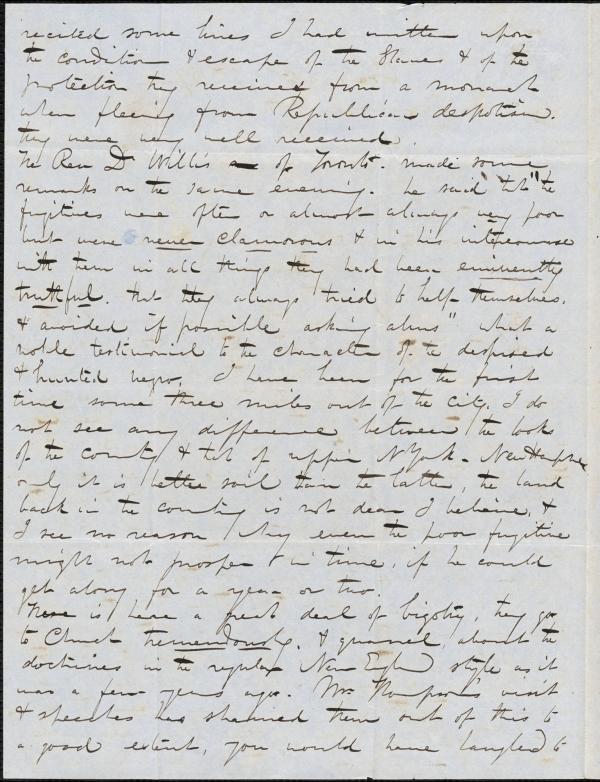 recited some lines I had written upon
the condition & escape of the Slaves & of the
protection they received from a monarch
when fleeing from Republican despotism.
they were very well received.
The Rev Dr Willis of Toronto. made some
remarks on the same evening. he said that "the
fugitives were often or almost always very poor
but were never clamorous & in his intercourse
with them in all things they had been eminently
truthful. that they always tried to help themselves.
& avoided if possible asking alms" what a
noble testimonial to the character of the despised
& hunted negro. I have been for the first
time some three miles out of the city. I do
not see any difference between the looks
of the country & that of upper N York - New Hampshire
only it is better soil than the latter, the land
back in the country is not dear I believe, &
I see no reason why even the poor fugitive
might not prosper in time, if he could
get along for a year or two.
There is here a great deal of bigotry, they go
to Church tremendously. & quarrel about the
doctrines in the regular New Engld style as it
was a few years ago. Mr Thompson's visit
& speeches has shamed them out of this to
a good extent, you would have laughed to